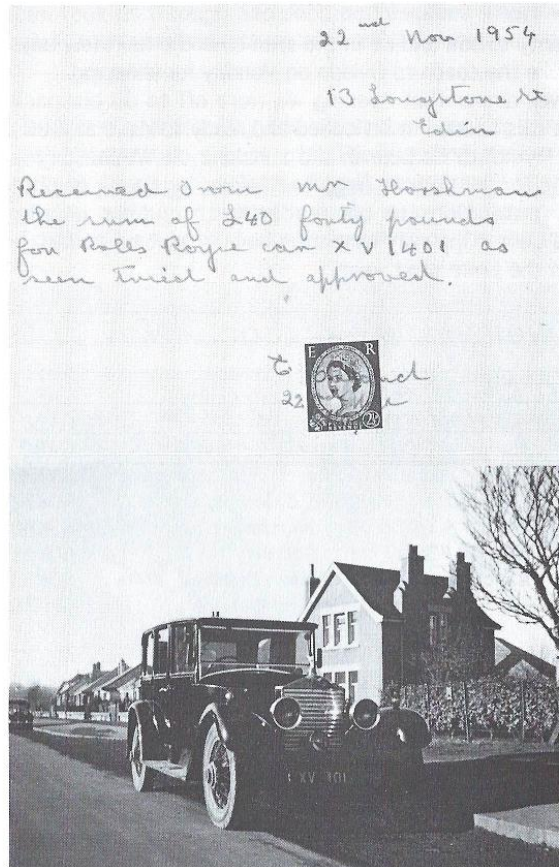 22nd Nov 1954
13 Longstone St
Edin
Received from Mr Horshman
the sum of £40 fourty pounds
for Rolls Royce car XV1401 as
seen tried and approved.
E R
22
2½
XV 1401